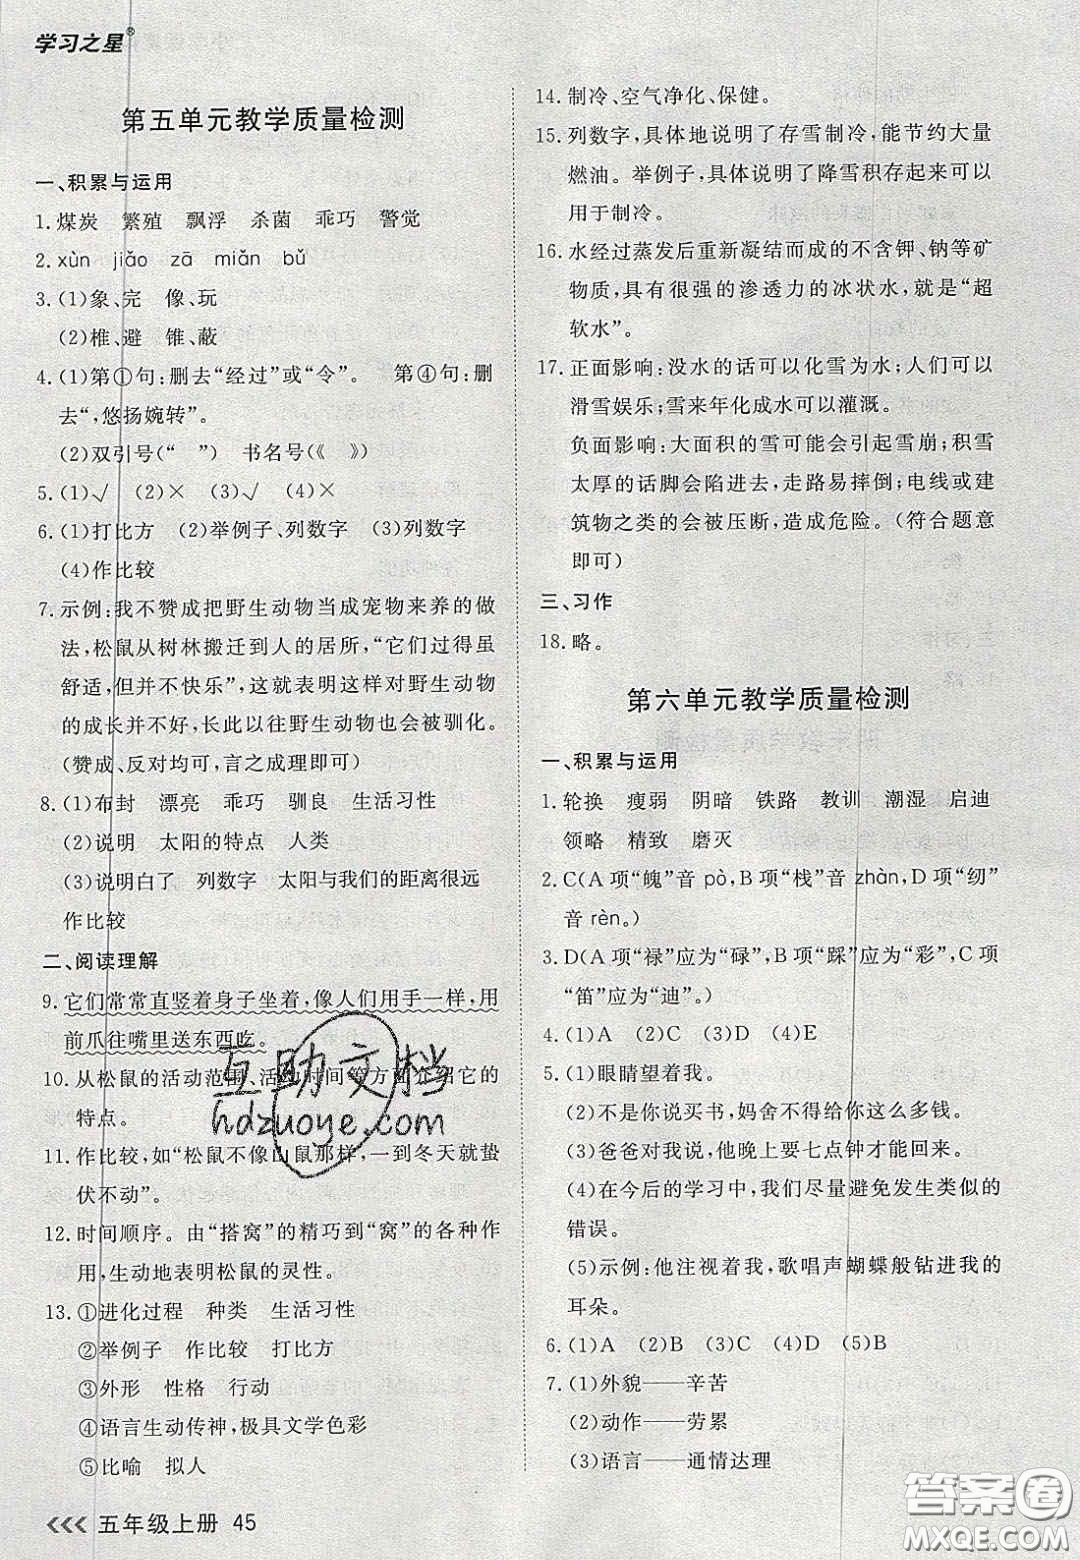 学习之星®
第五单元教学质量检测
一、积累与运用
1.煤炭 繁殖 飘浮 杀菌 乖巧 警觉
2.xùn jiǎo zā miǎn bǔ
3.(1)象、完 像、玩
(2)椎、避 锥、蔽
4.(1)第①句:删去“经过”或“令”。 第④句:删
去“,悠扬婉转”。
(2)双引号(“ ”) 书名号(《 》)
5.(1)√ (2)× (3)√ (4)×
6.(1)打比方 (2)举例子、列数字 (3)列数字
(4)作比较
7.示例:我不赞成把野生动物当成宠物来养的做
法,松鼠从树林搬迁到人的居所,“它们过得虽
舒适,但并不快乐”,这就表明这样对野生动物
的成长并不好,长此以往野生动物也会被驯化。
(赞成、反对均可,言之成理即可)
8.(1)布封 漂亮 乖巧 驯良 生活习性
(2)说明 太阳的特点 人类
(3)说明白了 列数字 太阳与我们的距离很远
作比较
二、阅读理解
9.它们常常直竖着身子坐着,像人们用手一样,用
前爪往嘴里送东西吃。
10.从松鼠的活动范围、活动时间等方面介绍它的
特点。
11.作比较,如“松鼠不像山鼠那样,一到冬天就蛰
伏不动”。
12.时间顺序。由“搭窝”的精巧到“窝”的各种作
用,生动地表明松鼠的灵性。
13.①进化过程 种类 生活习性
②举例子 作比较 打比方
③外形 性格 行动
④语言生动传神,极具文学色彩
⑤比喻 拟人
互助文档
hdzuoye.com
<<< 五年级上册 45
14.制冷、空气净化、保健。
15.列数字,具体地说明了存雪制冷,能节约大量
燃油。举例子,具体说明了降雪积存起来可以
用于制冷。
16.水经过蒸发后重新凝结而成的不含钾、钠等矿
物质,具有很强的渗透力的冰状水,就是“超
软水”。
17.正面影响:没水的话可以化雪为水;人们可以
滑雪娱乐;雪来年化成水可以灌溉。
负面影响:大面积的雪可能会引起雪崩;积雪
太厚的话脚会陷进去,走路易摔倒;电线或建
筑物之类的会被压断,造成危险。(符合题意
即可)
三、习作
18.略。
第六单元教学质量检测
一、积累与运用
1.轮换 瘦弱 阴暗 铁路 教训 潮湿 启迪
领略 精致 磨灭
2.C(A项“魄”音pò,B项“栈”音zhàn,D项“纫”
音rèn。)
3.D(A项“禄”应为“碌”,B项“踩”应为“彩”,C项
“笛”应为“迪”。)
4.(1)A (2)C (3)D (4)E
5.(1)眼睛望着我。
(2)不是你说买书,妈舍不得给你这么多钱。
(3)爸爸对我说,他晚上要七点钟才能回来。
(4)在今后的学习中,我们尽量避免发生类似的
错误。
(5)示例:他注视着我,歌唱声蝴蝶般钻进我的
耳朵。
6.(1)A (2)B (3)C (4)D (5)B
7.(1)外貌——辛苦
(2)动作——劳累
(3)语言——通情达理
答案圈
MXQE.COM